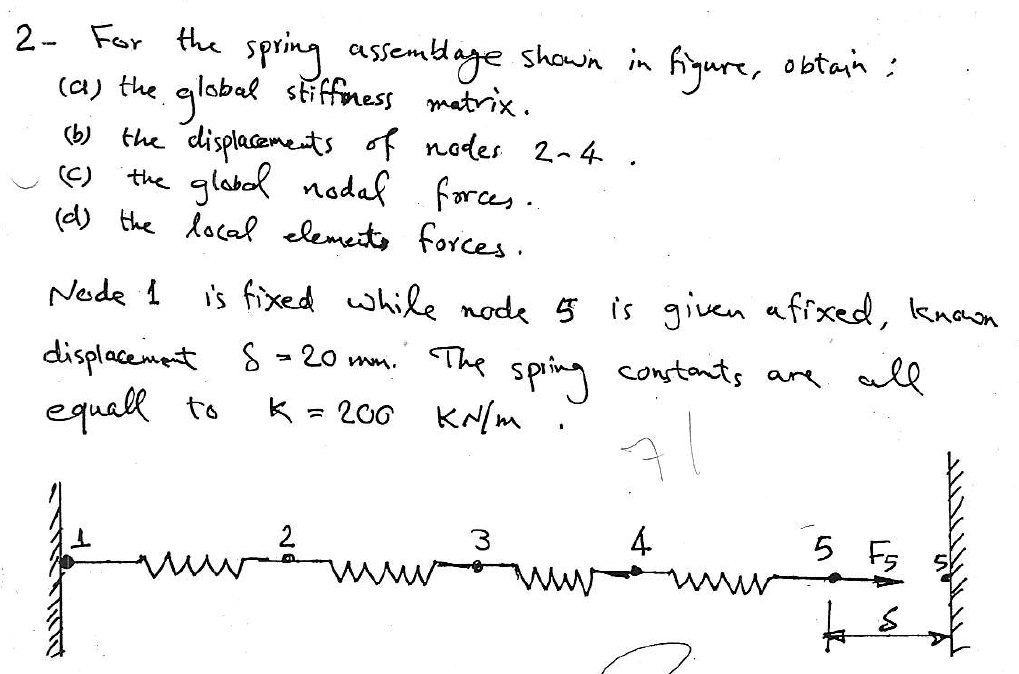 2- For the spring assemblage shown in figure, obtain :
(a) the global stiffness matrix.
(b) the displacements of nodes 2-4 .
(c) the global nodal forces.
(d) the local elements forces.
Node 1 is fixed while node 5 is given a fixed, known
displacement δ = 20 mm. The spring constants are all
equall to K = 200 KN/m .
1 2 3 4 5 F5 5
δ